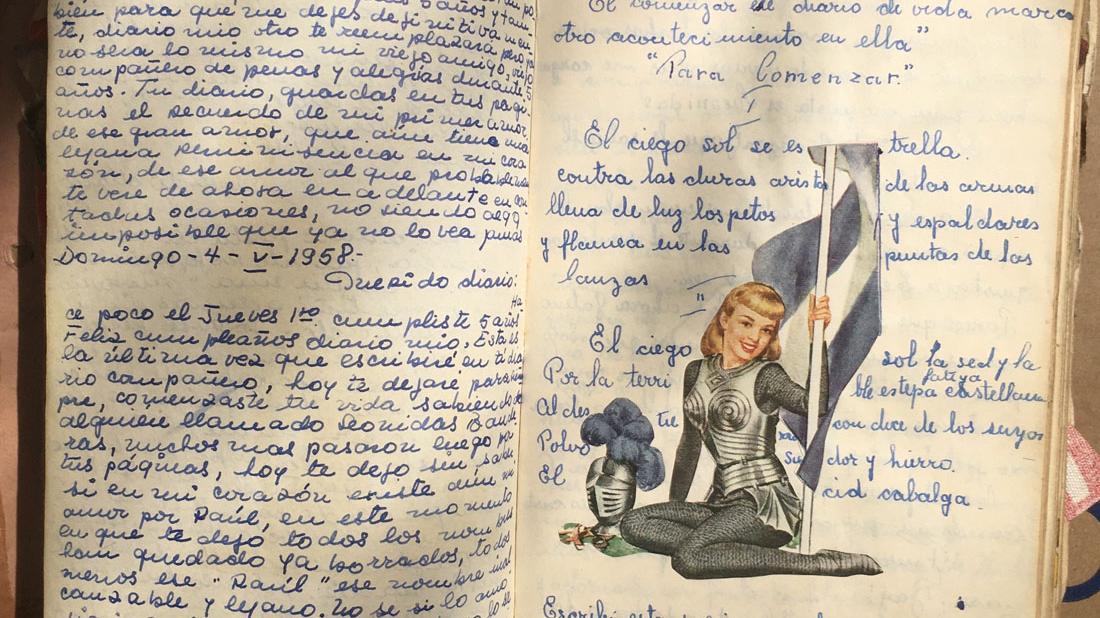 bien para que me dejes definitivamen
te, diario mio otro te reemplazará pero ya
no sera lo mismo mi viejo amigo, viejo
compañero de penas y alegrias durante 5
años. Tu diario, guardas en tus pági-
nas el recuerdo de mi primer amor,
de ese gran amor, que aún tiene una
lejana reminisencia en mi cora
zón, de ese amor al que probablemen
te veré de ahora en adelante en con
tadas ocasiones, no siendo algo
imposible que ya no lo vea jamas
Domingo - 4 - V - 1958.-
Querido diario:
Ha
ce poco el Jueves 1ro. cumpliste 5 años
Feliz cumpleaños diario mio. Esta es
la última vez que escribiré en ti dia
rio compañero, hoy te dejaré para siem
pre, comenzaste tu vida sabiendo de
alguien llamado Leonidas
ras, muchos mas pasaron luego por
tus páginas, hoy te dejo sin saber
si en mi corazón existe aún un
amor por Raúl, en este momento
en que te dejo todos los nombres
han quedado ya borrados, todos
menos ese "Raúl" ese nombre inal
canzable y lejano. No se si lo amo
El comenzar el diario de vida marca
otro acontecimiento en ella"
"Para Comenzar."
I
El ciego sol se es trella.
contra las duras aristas de las armas
llena de luz los petos y espaldares
y flamea en las puntas de las
lanzas
II
El ciego sol la sed y la
fatiga
Por la terri ble estepa castellana
Al des tie con doce de los suyos
Polvo su dor y hierro
El cid cabalga.